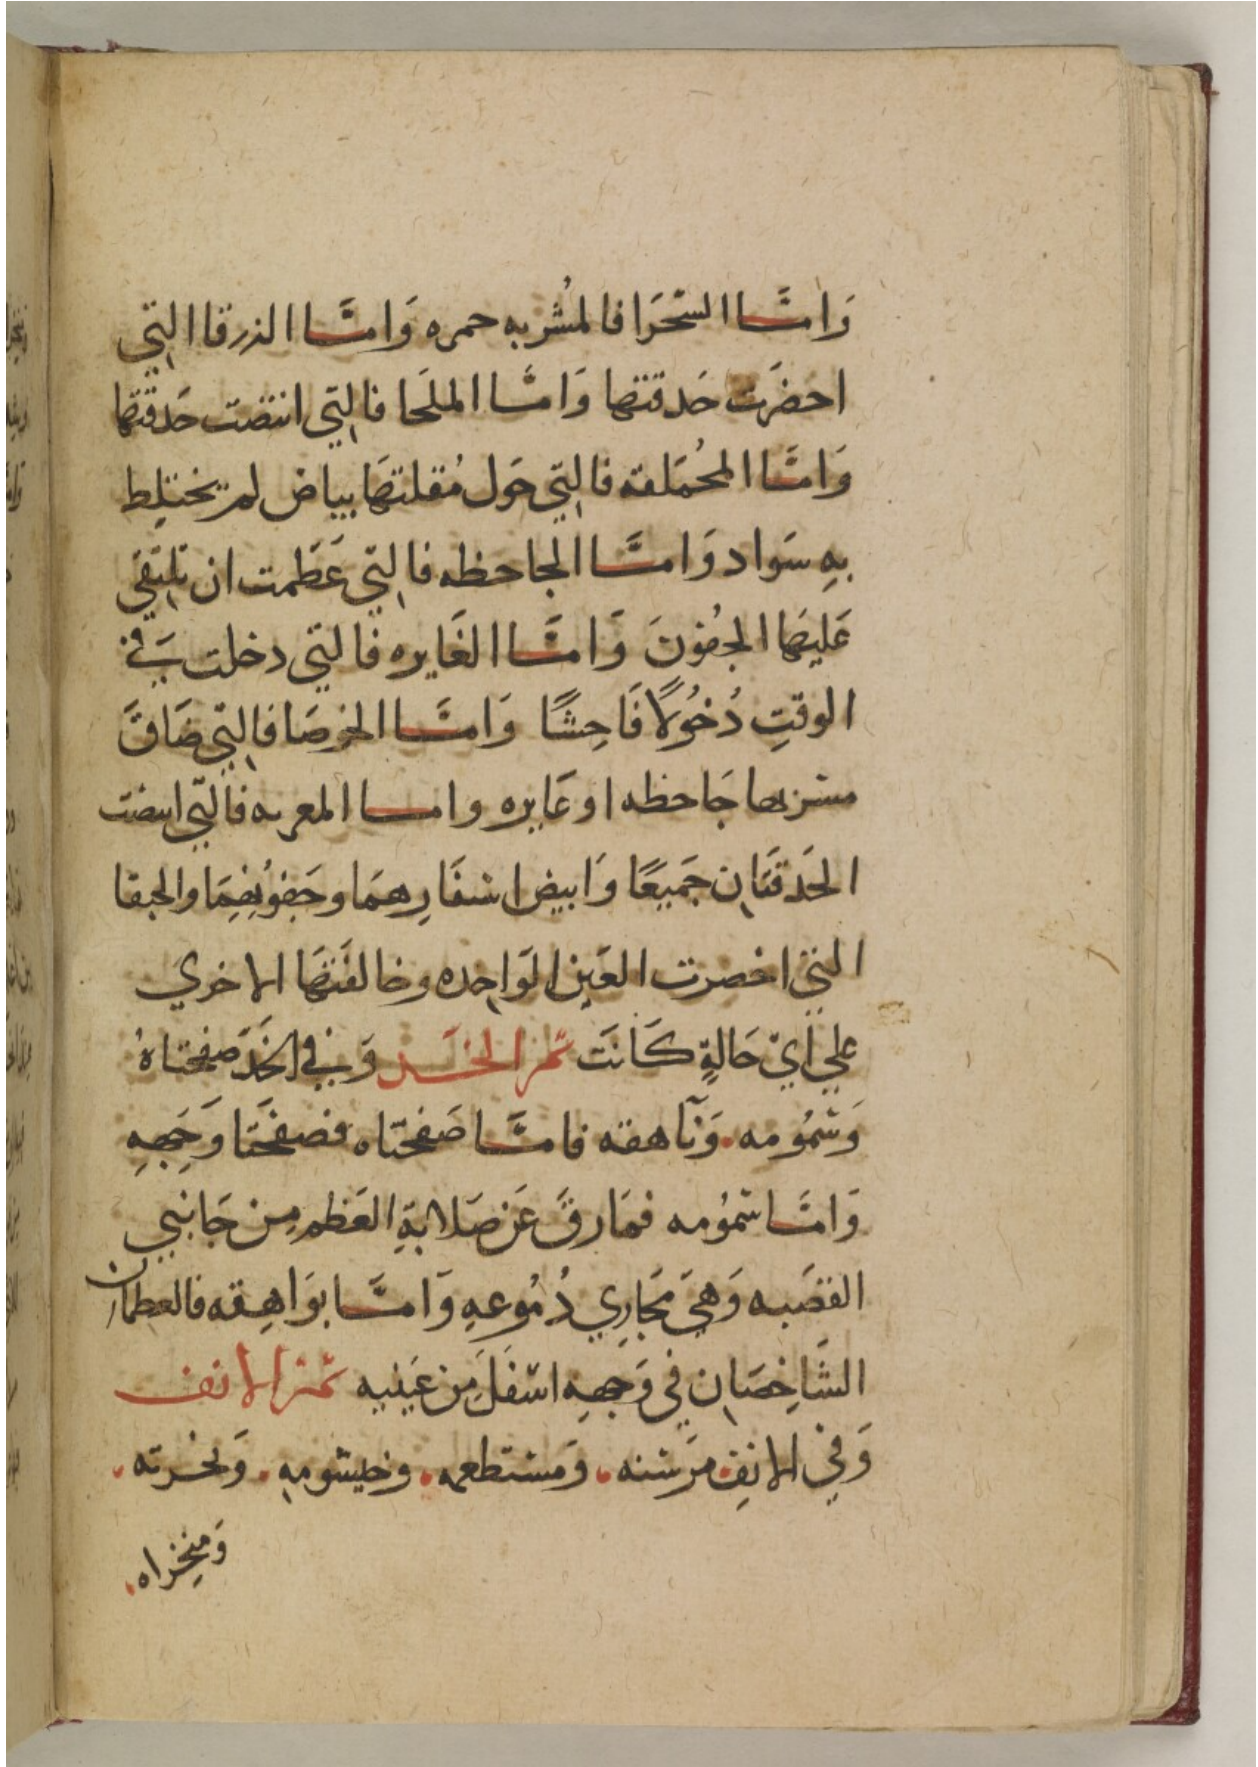 وَامَّا السّحَرَا فالمُشربه حمره وَامَّا الزرقا التِي
احضَرَت حَدقتها وَامَّا الملَحَا فالتِي ابيضت حَدقتها
وَامَّا المحُمَلقه فالتِي حَول مُقلتهَا بياض لم يختلِط
بهِ سَواد وَامَّا الجاحظه فالتِي عَظمت ان تلتقي
عَليهَا الجفُونَ وَامَّا الغَايره فالتي دخلت في
الوقتِ دُخُولًا فَاحِشًا وَامَّا الخوصَا فالتِي ضَاقَ
جَاحظه او غَايره واما المعربه فالتِّي ابيضت
الحَدقتان جَميعًا وَابيض اشفَارِهمَا وجَفونِهِمَا والخيفا
التي اخضرت العَين الوَاحِده وخالفَتهَا الاخري
علي ايّ حَالةٍ كَانَت ثمّ الخَد وَفي الخَدّ صَفحتاهُ
وَسُمُومه وَنَاهقه فامَّا صَفحَتَاه فصفحَتَا وَجهِهِ
وَامَّا سُمُومه فمَا رقَّ عَن صَلابةِ العَظم مِن جَانبي
القصَبه وَهيَ مَجَارِي دُمُوعهِ وَامَّا نوَاهِقه فالعظمان
الشَاخِصَان في وَجههِ اسفَلَ مِن عَينيه ثمّ الانف
وَفي الانفِ مَرسنه وَمستطعمه وخيشومه وَنخرته
وَمنخِراه